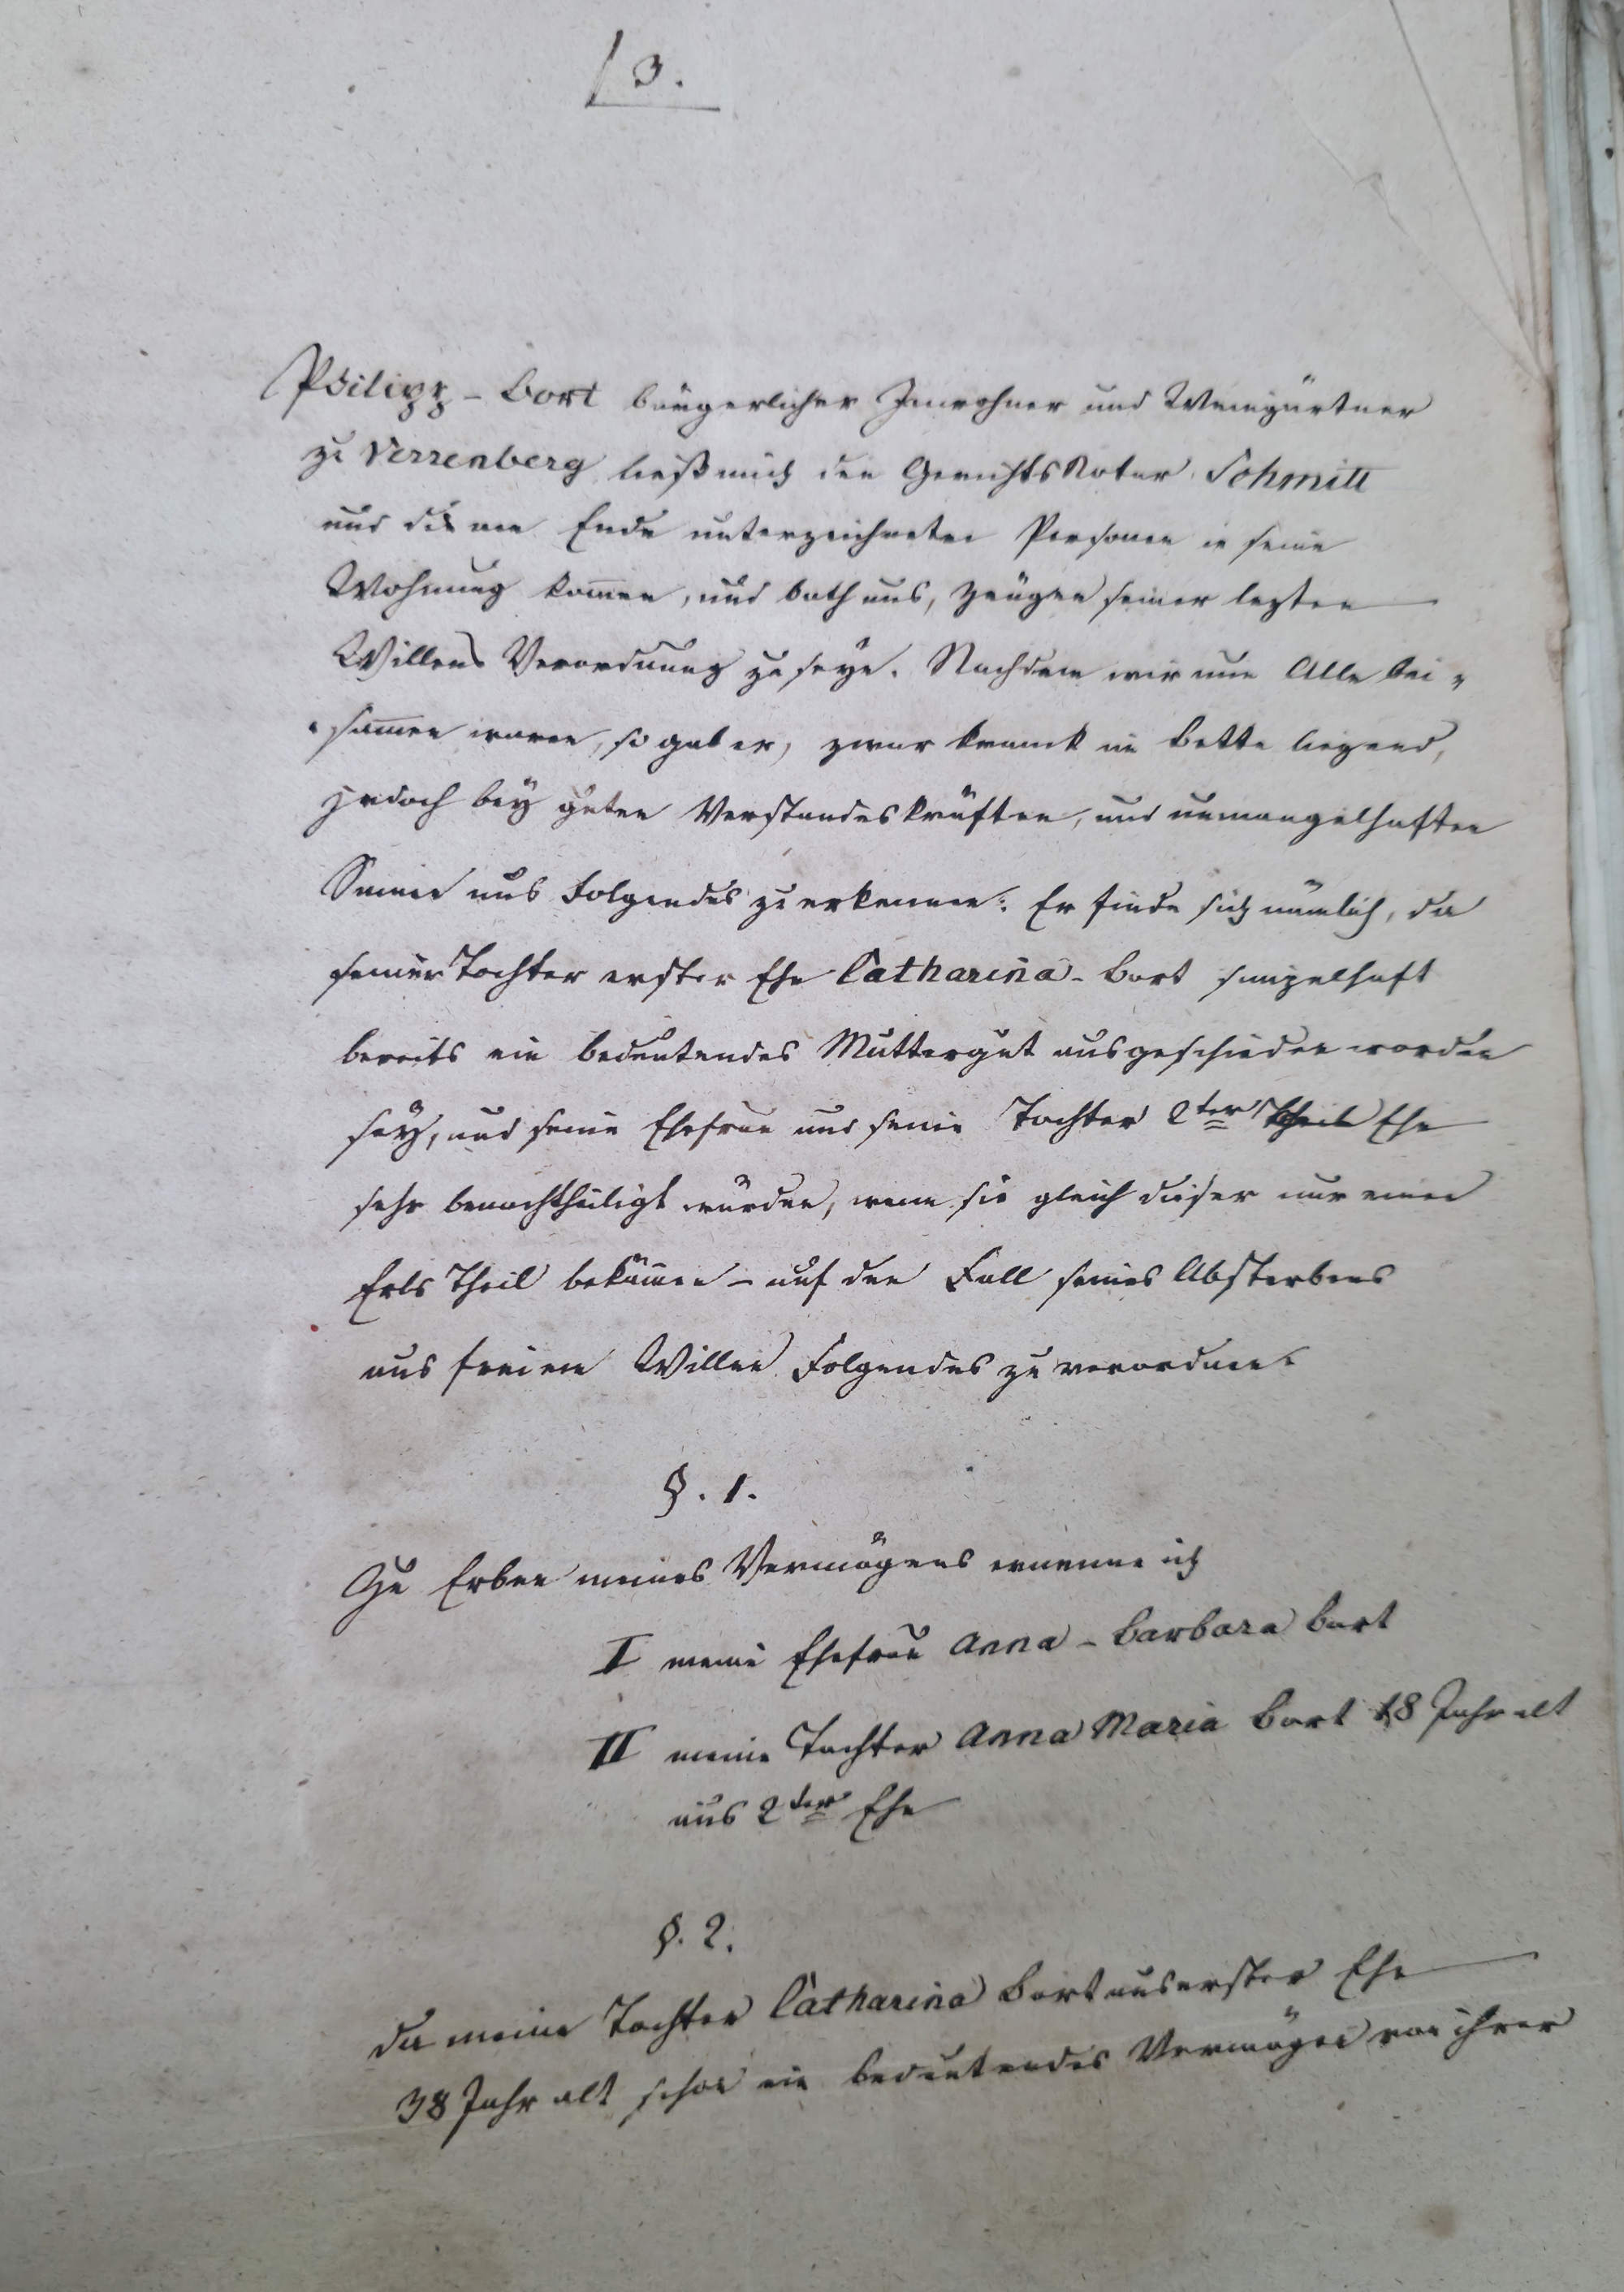 3.
Philipp - Bort bürgerlicher Innwohner und Weingärtner
zu Verrenberg ließ mich den GerichtsNotar Schmitt
und die am Ende unterzeichneten Personen in seine
Wohnung kom̄en, und bath uns, Zeugen seiner lezten
Willens Verordnung zu seyn. Nachdem wir nun Alle bei„
„sam̄en waren, so gab er, zwar kranck im Bette liegend,
jedoch beÿ guten Verstandeskräften, und unmangelhaften
Sinnen uns Folgendes zu erkennen: Er finde sich nämlich, da
seiner Tochter erster Ehe Catharina - Bort simpelhaft
bereits ein bedeutendes Muttergut ausgeschieden worden
seÿ, und seine Ehefrau und seine Tochter 2ter Ehe
sehr benachtheiligt würden, wenn sie gleich dieser nur einen
Erbs Theil bekäm̄en – auf den Fall seines Absterbens
aus freiem Willen Folgendes zu verordnen.
§. 1.
Zu Erben meines Vermögens ernenne ich
I meine Ehefrau Anna - Barbara Bort
II meine Tochter Anna Maria Bort 18 Jahr alt
aus 2ter Ehe
§. 2.
Da meine Tochter Catharina Bort aus erster Ehe
38 Jahr alt schon ein bedeutendes Vermögen von ihrer